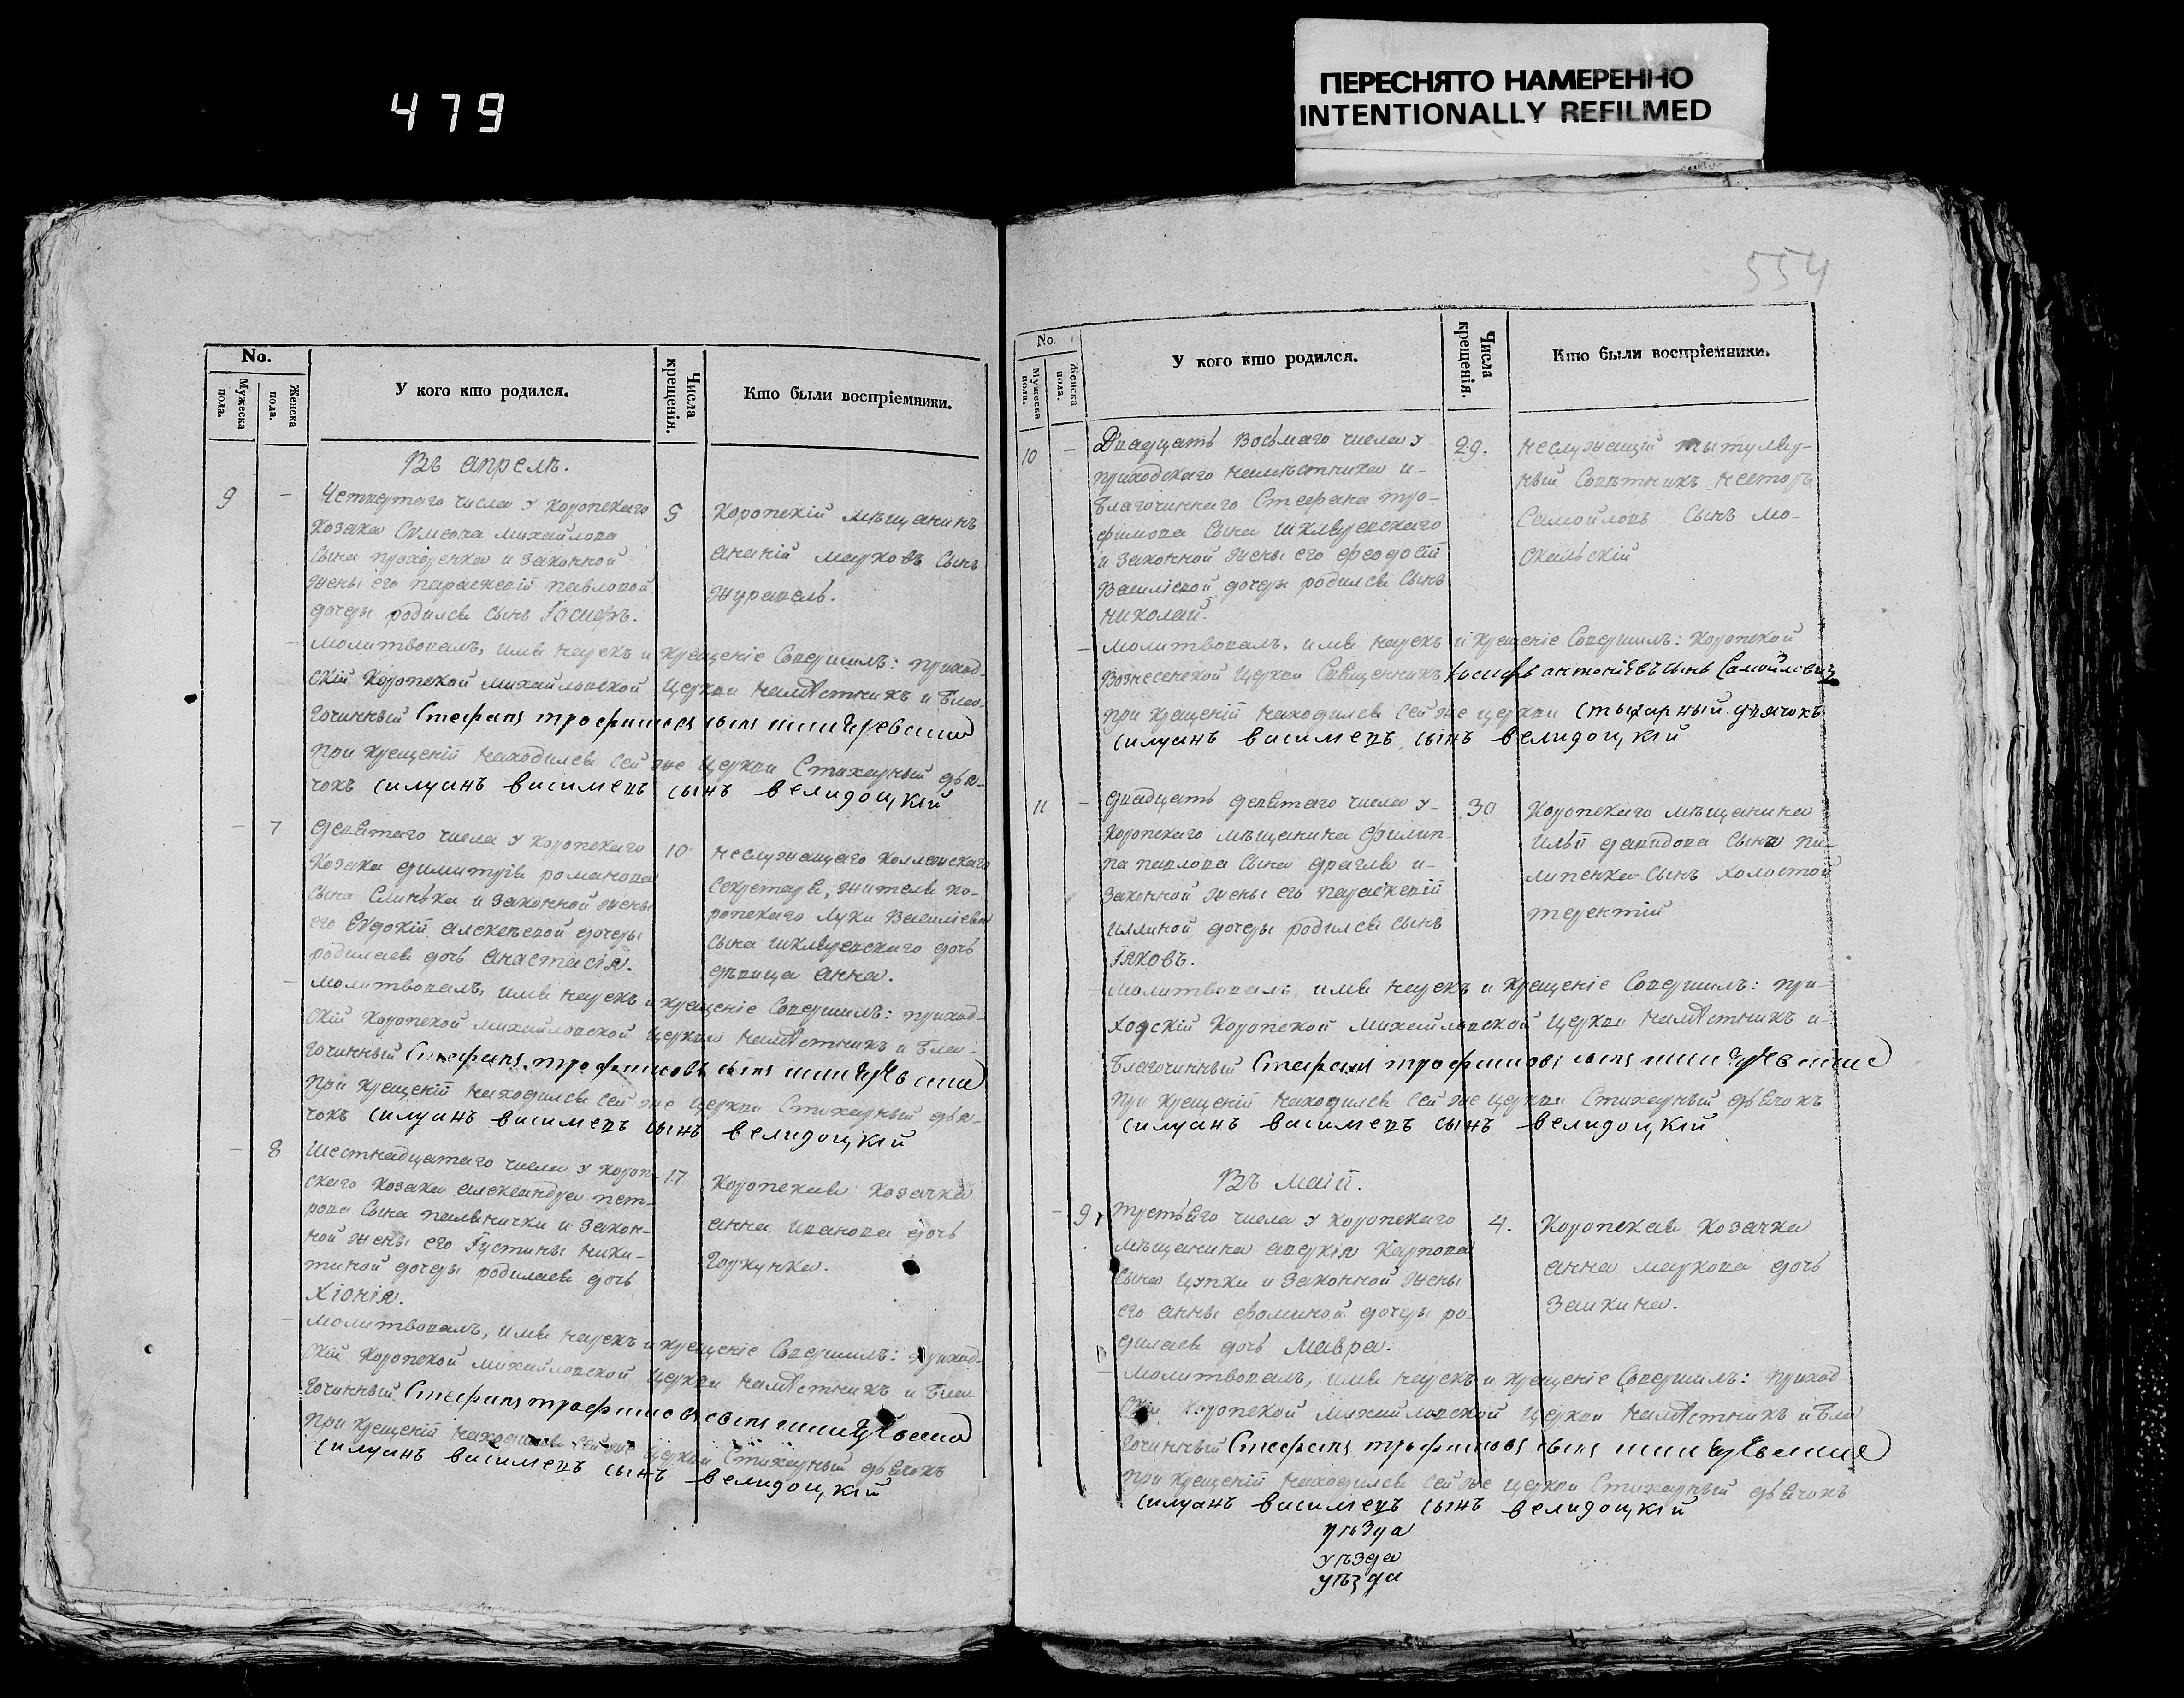 479
ПЕРЕСНЯТО НАМЕРЕННО
INTENTIONALLY REFILMED
554
No.
Мужеска пола.
Женска пола.
У кого кто родился.
Числа крещенія.
Кто были воспріемники.
Въ апрелѣ.
9 - Четвертаго числа у коропскаго
козака Сѵмеона михайлова
сына прохоренка и законной
жены его параскевіи павловой
дочеры родился сынъ Іосифъ.
5
Коропскій мѣщанинъ
ананій марковъ сынъ
журавель.
- молитвовалъ, имя нарекъ и крещеніе Совершилъ: приход-
скій Коропской михайловской церкви намѣстникъ и бла-
гочинный Стефанъ трофимовъ сынъ
при крещеніи находился сей же церкви Стихарный дья-
чокъ силуанъ василіевъ сынъ велидоцкій
- 7 девятаго числа у коропскаго
козака димитрія романова
сына Слинька и законной жены
его Евдокіи алексѣевой дочеры
родилася дочь анастасія.
10
неслужащаго коллежскаго
секретаря, жителя ко-
ропскаго луки Василіева
сына шкляревскаго дочь
дѣвица анна.
- молитвовалъ, имя нарекъ и крещеніе Совершилъ: приход-
скій Коропской михайловской церкви намѣстникъ и бла-
гочинный Стефанъ трофимовъ сынъ
при крещеніи находился сей же церкви Стихарный дья-
чокъ силуанъ василіевъ сынъ велидоцкій
- 8 Шестнадцатаго числа у короп-
скаго козака александра пет-
рова сына палянички и закон-
ной жены его Іустины ники-
тиной дочеры родилася дочь
хіонія.
17
Коропская козачка
анна иванова дочь
Горкунка.
- молитвовалъ, имя нарекъ и крещеніе Совершилъ: приход-
скій Коропской михайловской церкви намѣстникъ и бла-
гочинный Стефанъ трофимовъ сынъ
при крещеніи находился сей же церкви Стихарный дьячокъ
силуанъ василіевъ сынъ велидоцкій
No.
Мужеска пола.
Женска пола.
У кого кто родился.
Числа крещенія.
Кто были воспріемники.
10 - Двадцать восьмаго числа у-
приходскаго намѣстника и-
благочиннаго Стефана тро-
фимова сына шкляревскаго
и законной жены его феодосіи
Василіевой дочеры родился сынъ
николай.
29.
неслужащій тытуляр-
ный Совѣтникъ несторъ
Самойловъ сынъ мо-
скальскій
- молитвовалъ, имя нарекъ и крещеніе Совершилъ: Коропской
вознесенской церкви Священникъ Іосифъ антоніевъ сынъ Самойловичъ
при крещеніи находился сей же церкви стыхарный дьячокъ
силуанъ василіевъ сынъ велидоцкій
11 - двадцать девятаго числа у-
коропскаго мѣщанина филип-
па павлова сына драгля и-
законной жены его параскевіи
иллиной дочеры родился сынъ
іяковъ.
30
Коропскаго мѣщанина
ильи давидова сына пи-
липенка сынъ холостой
терентій
- молитвовалъ, имя нарекъ и крещеніе Совершилъ: при-
ходскій Коропской михайловской церкви намѣстникъ и-
благочинный Стефанъ трофимовъ сынъ
при крещеніи находился сей же церкви Стихарный дьячокъ
силуанъ василіевъ сынъ велидоцкій
Въ маіи.
- 9 третьяго числа у коропскаго
мѣщанина аверкія карпова
сына цупки и законной жены
его анны фоминой дочеры ро-
дилася дочь мавра.
4.
Коропская козачка
анна маркова дочь
Заикина.
- молитвовалъ, имя нарекъ и крещеніе Совершилъ: приход-
скій Коропской михайловской церкви намѣстникъ и бла
гочинный Стефанъ трофимовъ сынъ
при крещеніи находился сей же церкви Стихарный дьячокъ
силуанъ василіевъ сынъ велидоцкій
уѣзда
уѣзда
уѣзда